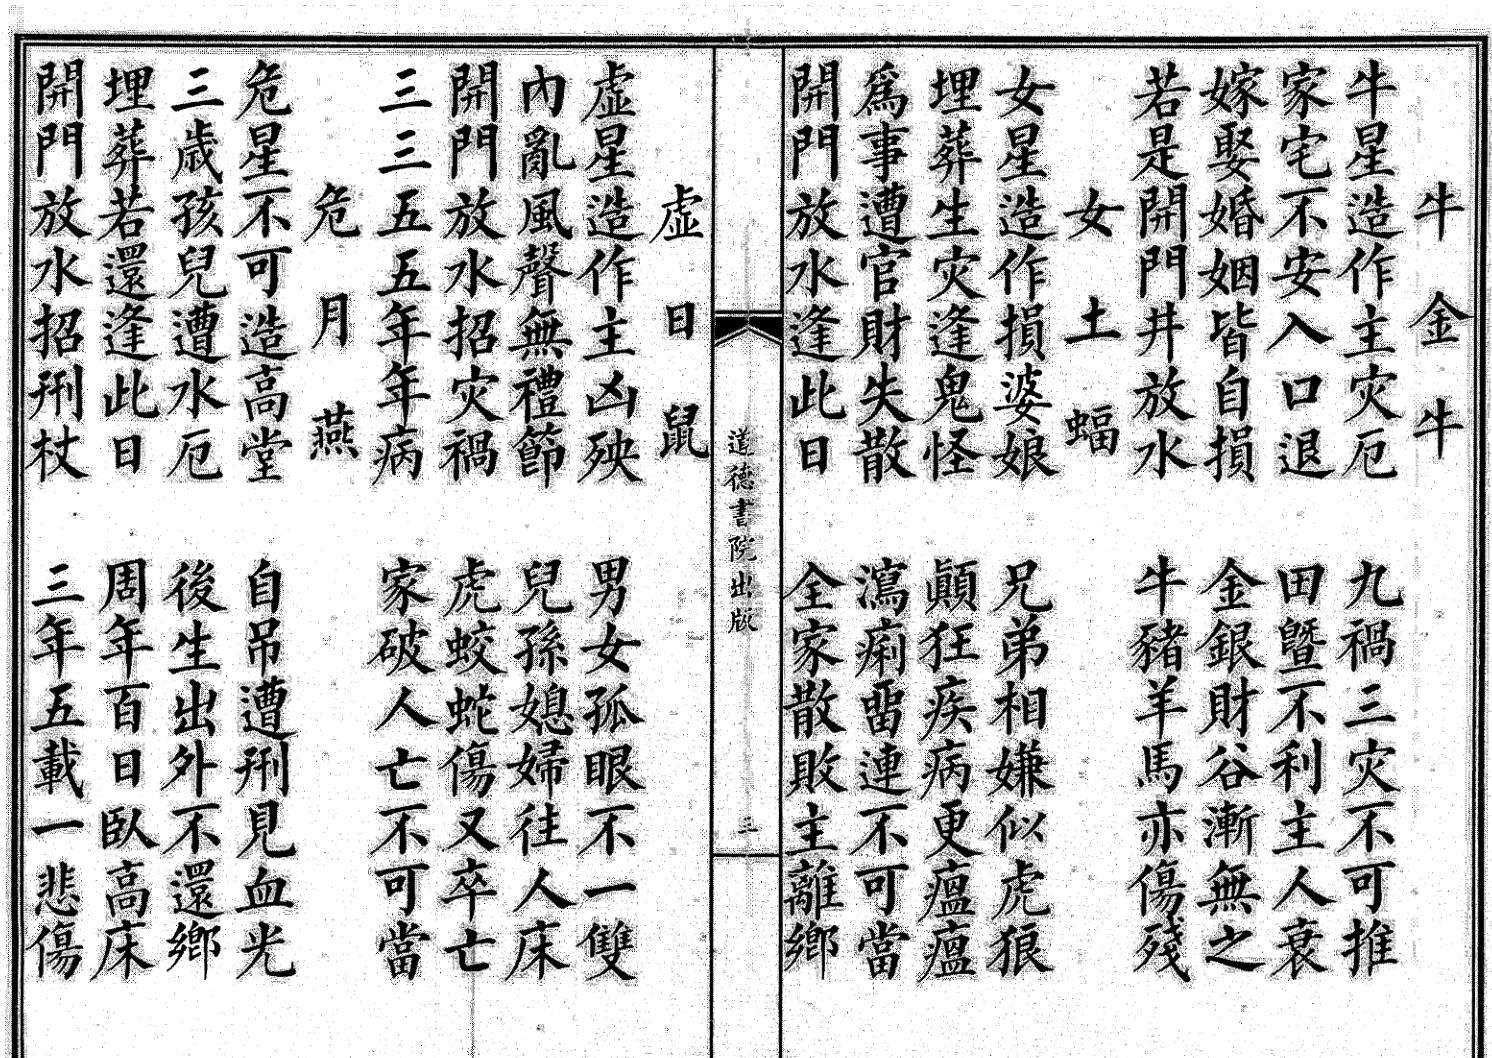 牛金牛
牛星造作主灾厄　九禍三灾不可推
家宅不安入口退　田曁不利主人衰
嫁娶婚姻皆自損　金銀財谷漸無之
若是開門井放水　牛豬羊馬亦傷殘
女土蝠
女星造作損婆娘　兄弟相嫌似虎狼
埋葬生灾逢鬼怪　顚狂疾病更瘟瘟
爲事遭官財失散　瀉痢畱連不可當
開門放水逢此日　全家散敗主離鄉
道德書院出版
三
虛日鼠
虛星造作主凶殃　男女孤眠不一雙
內亂風聲無禮節　兒孫媳婦往人床
開門放水招灾禍　虎蛟蛇傷又卒亡
三三五五年年病　家破人亡不可當
危月燕
危星不可造高堂　自吊遭刑見血光
三歲孩兒遭水厄　後生出外不還鄉
埋葬若還逢此日　周年百日臥高床
開門放水招刑杖　三年五載一悲傷